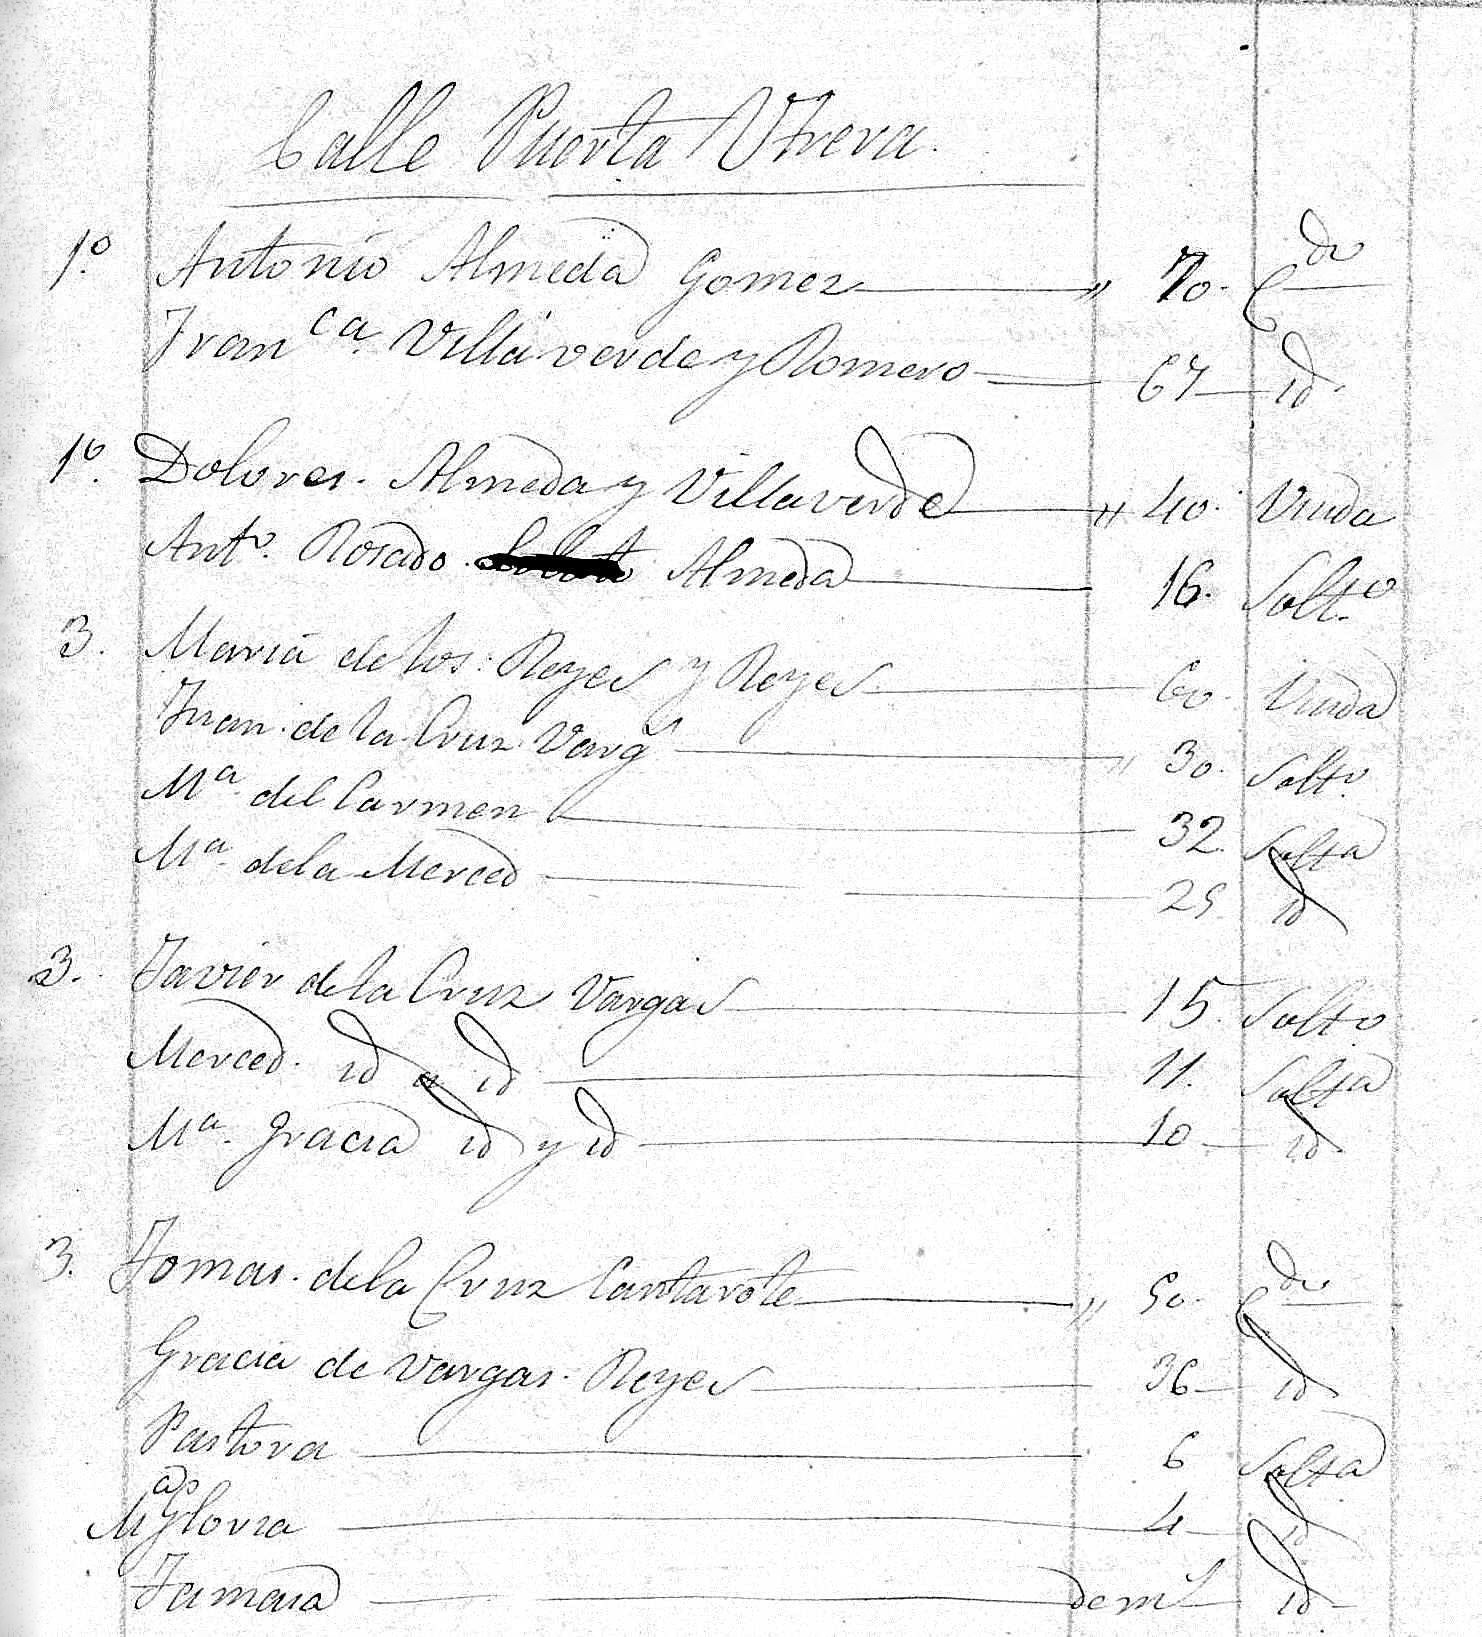 Calle Puerta Utrera.
1º. Antonio Almeda Gomez " 70. Cdo
Franca. Villaverde y Romero 67 id.
1º. Dolores. Almeda y Villaverde " 40. Viuda
Anto. Rosado Almeda 16. Solto.
3. Maria de los Reyes y Reyes 60. Viuda
Juan de la Cruz Varg " 30. Solto.
Ma. del Carmen 32. Solta
Ma. de la Merced 25 id
3. Javier de la Cruz Vargas 15. Solto
Merced. id y id 11. Solta
Ma. Gracia id y id 10 id
3. Tomas. de la Cruz Cantarote " 50. Cdo
Gracia de Vargas. Reyes 36 id
Pastora 6 Solta
Ma Gloria 4 id
de ms id